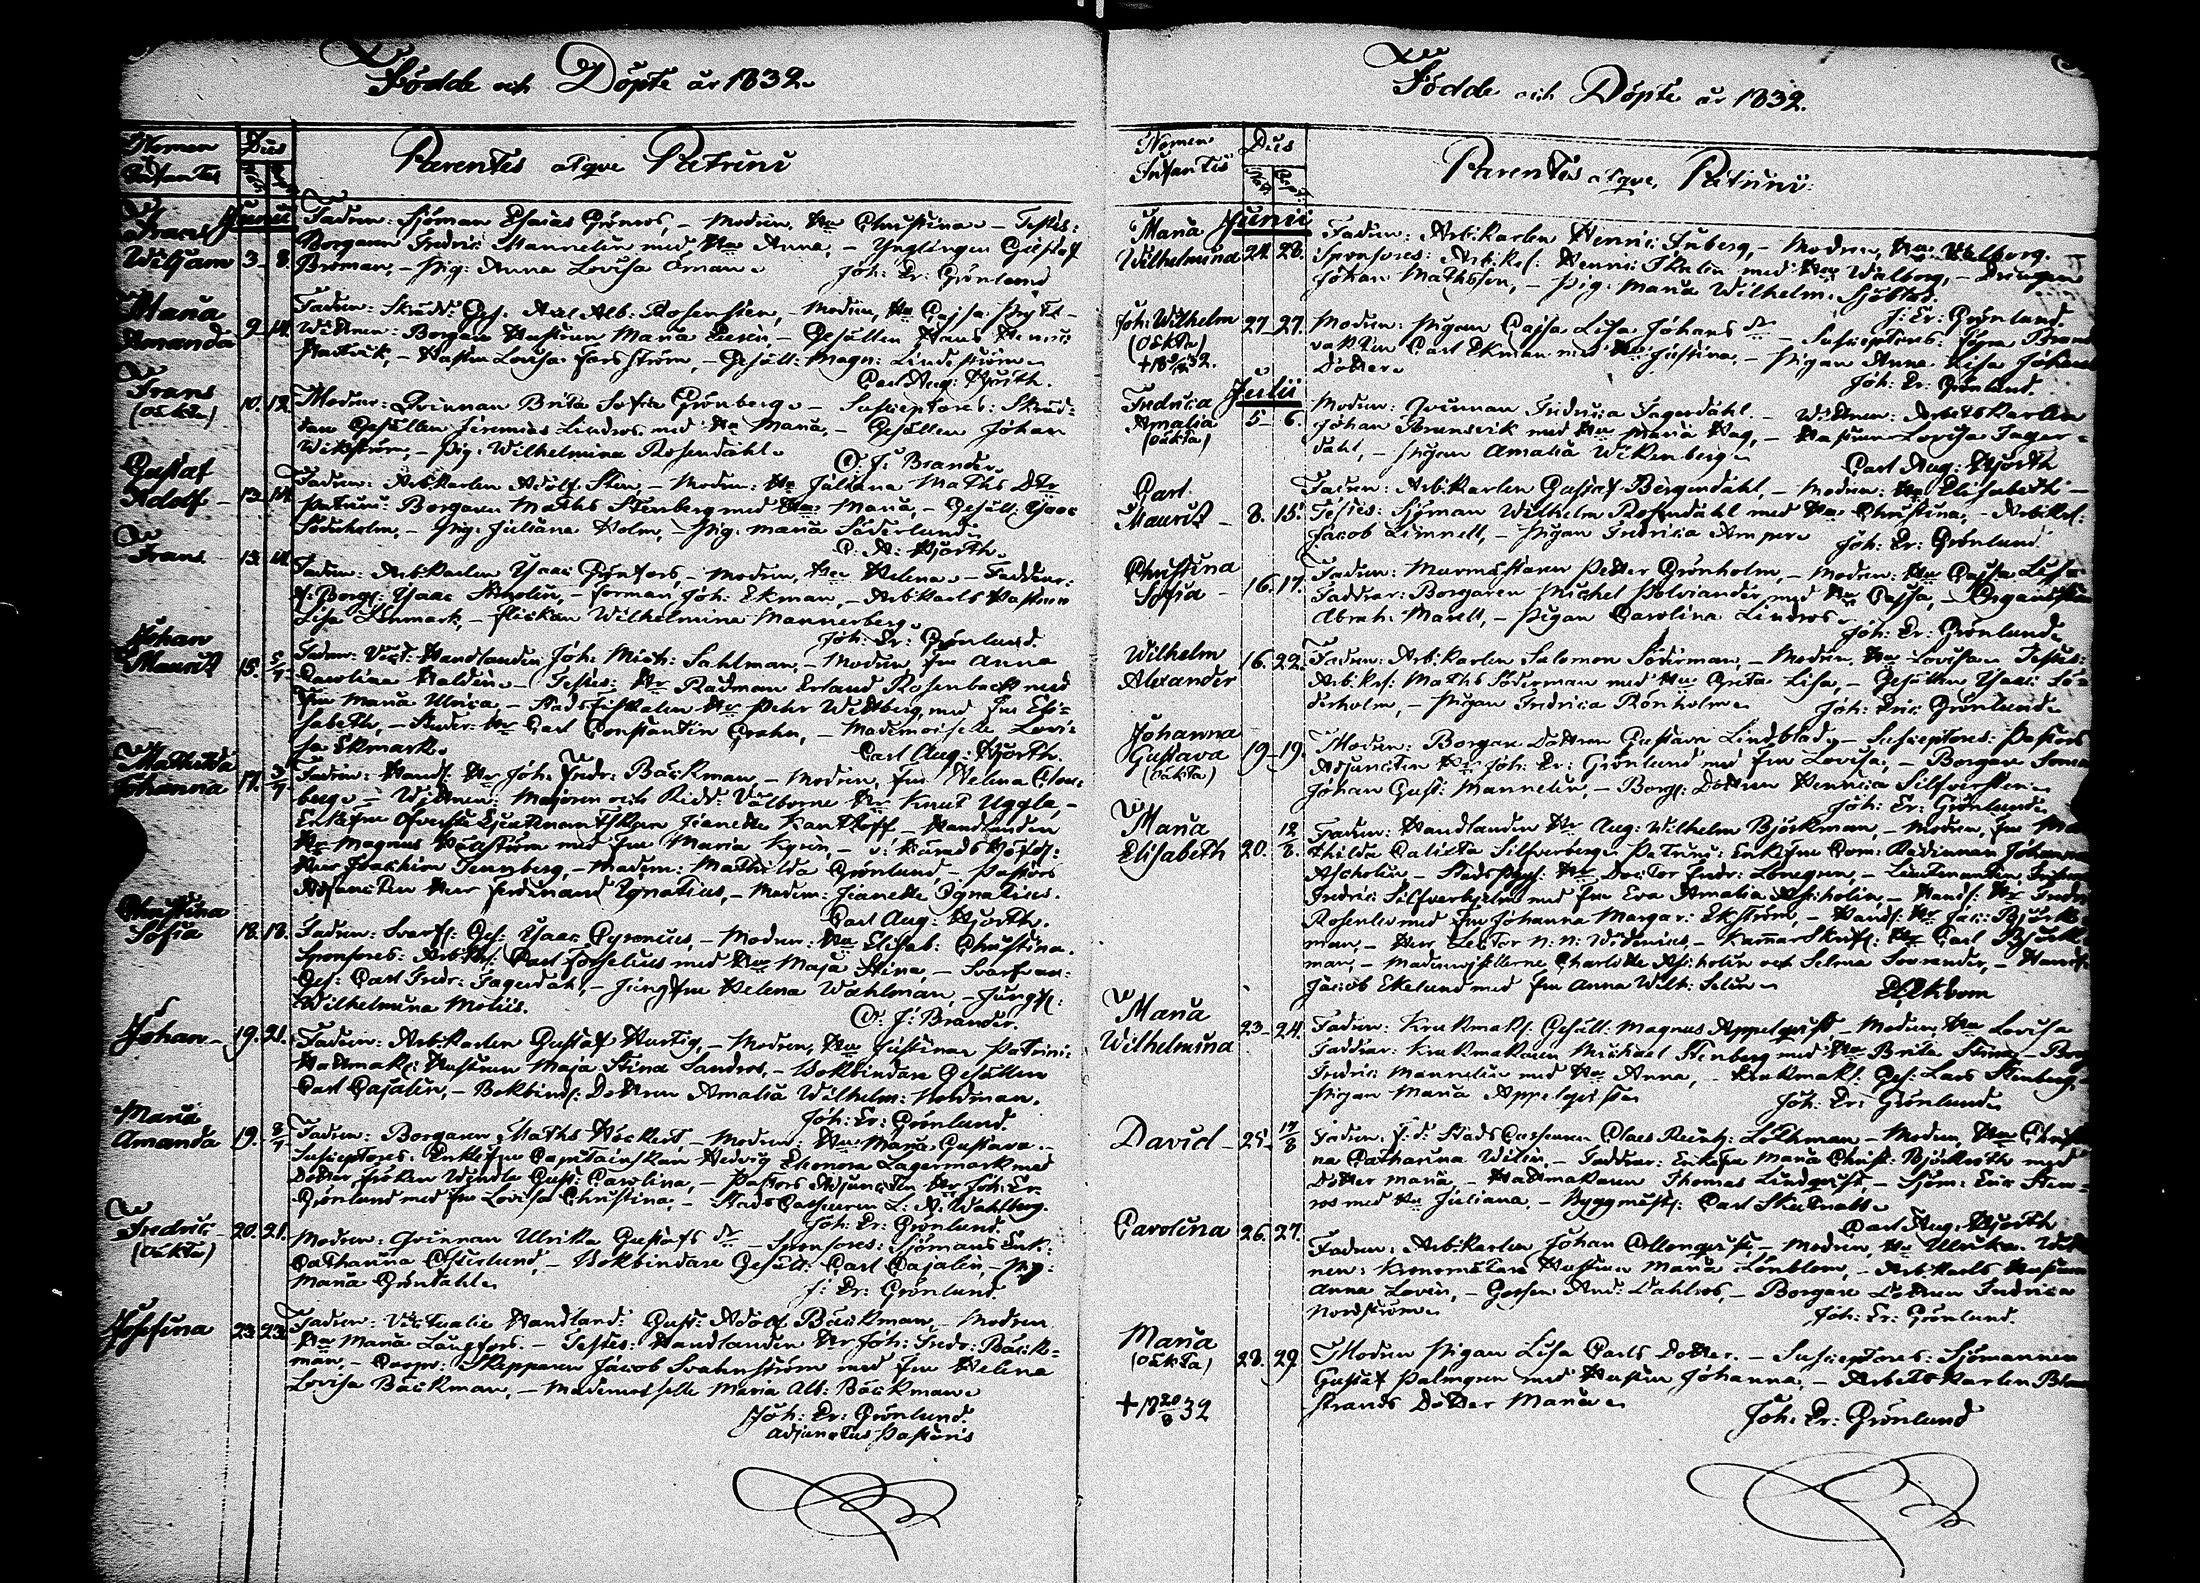 Födde och Döpte år 1832.
Nomen Dies Parentes atque Patrini
Infantis
Junii
Frans Fadren: Sjöman Esaias Grönros, – Modren, Hu Christina – Testes:
Borgaren Fredric Mannelin med Hu Anna, – Ynglingen Gustaf
Wiljam 3. 8. Broman, – Pig: Anna Lovisa Öman.
Joh: Er: Grönlund
Maria Fadren: Skrädd: Ges: Axel Alb: Rosensten, – Modren, Hu Cajsa
Amanda 9. 14. Wittnen: Borgare Hustrun Maria – Gesällen Hans Henric
– Hustru Lovisa Forsström, – Gesäll: Magn: Lindeström
Carl Aug: Hjorth.
Frans 10. 12. Modren: Qvinnan Brita Sofia Grönberg. – Susceptores: Skräd-
(oäkta) dare Gesällen Jeremias Lindros med Hu Maria, – Gesällen Johan
Wikström, – Pig: Wilhelmina Rosendahl.
C: J: Brander.
Gustaf Fadren: Arb:karlen Adolf Sten, – Modren: Hu Juliana Maths Dtr
Adolf 13. 14. Patrini: Borgaren Maths Stenberg med Hu Maria, – Gesäll: Ysac
Söderholm, – Pig: Juliana Holm, – Pig: Maria Söderlund.
C. A: Hjorth.
Frans 13. 14. Fadren: Arb:karlen Ysaac Grönfors, – Modren, Hu Helena. – Faddrar:
f: Borg: Ysaac Aholin, – Forman Joh: Ekman, – Arb:karls Hustrun
Lisa Lönmark, – Flickan Wilhelmina Mannerberg.
Joh: Er: Grönlund.
Johan Fadren: Vict: Handlanden Joh: Mich: Sahlman, – Modren, Fru Anna
Mauritz 15. 5/7 Carolina Waldin. – Testes: Hr Rådman Erland Rosenback med
Fru Maria Ulrica, – Stadsfiskalen Hr Pehr Wettberg med Fru Eli-
sabeth, – Studer: Hr Carl Constantin Crohn, – Mademoiselle Lovi-
sa Ekmark.
Carl Aug: Hjorth.
Mathilda Fadren: Handl: Hr Joh: Fredr: Bäckman, – Modren, Fru Helena
Johanna 17. 3/7 berg. – Wittnen: Majoren och Ridd: Välborne Hr Knut Uggla, –
Enkefru Öfverste Lieutenantskan Jeanette Kanthoff – Handlanden
Hr Magnus Hällström med Fru Maria Kyrin, – v: Härads Höfd:
Herr Joachim Tennberg, – Madem: Mathilda Grönlund, – Pastors
Adjuncten Herr Ferdinand Ignatius, – Madem: Jeanette Ignatius.
Carl Aug: Hjorth.
Christina
Sofia 18. 18. Fadren: Svarf: Ges: Ysaac Cyronius, – Modren: Hu Elisab: Christina.
Sponsores: Arb:k: Carl Forselius med Hu Maja Stina, – Svarfvar:
Ges: Carl Fredr: Fagerdahl, – Jungfru Helena Wahlman, – Jungf:
Wilhelmina Molis.
C: J: Brander.
Johan 19. 21. Fadren: Arb:karlen Gustaf Hurtig, – Modren, Hu Justina. Patrini:
Hattmak: Hustrun Maja Stina Sandros, – Bokbindare Gesällen
Carl Cajalén, – Bokbind: Dottren Amalia Wilhelm: Nordman.
Joh: Er: Grönlund.
Maria Fadren: Borgaren Maths Höckert, – Modren: Hu Maria Gustava.
Amanda 19. 8/7 Susceptores: Enkefru Capitainskan Hedvig Eleonora Lagermark med
Dotter Fröken Wendla Gust: Carolina, – Pastors Adjuncten Hr Joh: Er:
Grönlund med Fru Lovisa Christina, – Stads Casseuren L: A: Wahlberg.
Joh: Er: Grönlund.
Fredric 20. 21. Modren: Qvinnan Ulrika Gustafs Dr – Sponsores: Sjömans Enk:
(oäkta) Catharina Österlund, – Bokbindare Gesäll: Carl Cajalén, – Pig:
Maria Gröndahl.
J: Er: Grönlund
Josefina 23. 23. Fadren: Victualie Handland: Gust: Adolf Bäckman, – Modren
Hu Maria Långfors. – Testes: Handlanden Hr Joh: Fredr: Bäck-
man, – Coopv: Skepparen Jacob Svahnström med Fru Helena
Lovisa Bäckman, – Mademoiselle Maria Alb: Bäckman.
Joh: Er: Grönlund.
Adjunctus Pastoris
Födde och Döpte år 1832.
Nomen Dies Parentes atque Patrini
Infantis
Junii
Maria Fadren: Arb:karlen Henric Friberg, – Modren, Hu Walborg.
Wilhelmina 24. 28. Sponsores: Arb:k: Henric Thulin med Hu Walborg, – Drängen
Johan Mathsson, – Pig: Maria Wilhelm: Sjöblad.
J: Er: Grönlund.
Joh: Wilhelm 27. 27. Modren: Pigan Cajsa Lisa Johans Dr – Susceptores: Fyra Brand
(oäkta) vakten Carl Ekman med Hu Justina, – Pigan Anna Lisa Johans
Dotter.
Joh: Er: Grönlund.
Julii
Fredrica Modren: Qvinnan Fredrica Fagerdahl. – Wittnen: Arbetskarlen
Amalia 5. 6. Johan Brunsvik med Hu Maria Hag, – Hustrun Lovisa Fager-
(oäkta) dahl, – Pigan Amalia Wikenberg.
Carl Aug: Hjorth
Carl Fadren: Arb:karlen Gustaf Bergendahl, – Modren: Hu Elisabeth –
Mauritz 8. 15. Testes: Sjöman Wilhelm Rosendahl med Hu Christina, – Arb:karl:
Jacob Limnell, – Pigan Fredrica Amper.
Joh: Er: Grönlund.
Christina Fadren: Murmästaren Petter Grönholm, – Modren: Hu Cajsa Lisa
Sofia 16. 17. Faddrar: Borgaren Michel Polviander med Hu Cajsa, – Organisten
Abrah: Marell, – Pigan Carolina Lindros.
Joh: Er: Grönlund.
Wilhelm 16. 22. Fadren: Arb:karlen Salomon Söderman, – Modren, Hu Lovisa. Testes:
Alexander Arb:k: Maths Söderman med Hu Greta Lisa, – Gesällen Ysaac Sö-
derholm, – Pigan Fredrica Rönholm.
Joh: Eric Grönlund.
Johanna
Gustava 19. 19. Modren: Borgare Dottren Gustava Lindblad. – Susceptores: Pastors
(oäkta) Adjuncten Hr Joh: Er: Grönlund med Fru Lovisa, – Borgare Sonen
Johan Gust: Mannelin, – Borg: Dottren Henrica Silfversten.
Joh: Er: Grönlund.
Maria Fadren: Handlanden Hr Aug: Wilhelm Björkman, – Modren, Fru Ma-
Elisabeth 20. 12/8. thilda Calixta Silfverberg. Patrini: Enkefru Com: Rådinnan Johanna
Ascholin – Stadsphys: Hr Doctor Fredr: Lönegren – Lieutenanten
Fredric Silfverhjelm med Fru Eva Amalia Ascholin, – Handl: Hr Fredr
Rosenlew med Fru Johanna Margar: Ekström, – Handl: Hr Jac: Björk-
man, – Herr Lector N: N: Widenius, – Kamarskrif: Hr Carl Björk-
man, – Mademoisellerne Charlotte Ascholin och Selma Sovander, – Handl:
Jacob Ekelund med Fru Anna Wilh: Selin.
Maria
Wilhelmina 23. 24. Fadren: Krukmak: Gesäll: Magnus Appelqvist – Modren Hu Lovisa
Faddrar: Krukmakaren Michael Stenberg med Hu Brita Stina – Borg
Fredric Mannelin med Hu Anna, – Krukmak: Ges: Lars Stenberg, –
Pigan Maria Appelqvist.
Joh: Er: Grönlund.
David 25. 17/8 Fadren: f: d: Stads Casseuren Claes Reinh: Löthman – Modren, Hu Christi-
na Catharina Witlin, – Faddrar: Enkefru Maria Christ: Björkroth med
Dotter Maria, – Hattmakaren Thomas Lindqvist, – Sjöm: Eric Sten-
ros med Hu Juliana, – Byggmäst: Carl Skutnabb.
Carl Aug: Hjorth
Carolina 26. 27. Fadren: Arb:karlen Johan Ollonqvist, – Modren, Hu Ulrika. Witt-
nen: Kronometare Hustrun Maria Lönblom, – Arb:karls Hustrun
Anna Lovin, – Gossen And: Dahlros, – Borgare Dottren Fredrica
Nordström.
Joh: Er: Grönlund.
Maria
(oäkta) 28. 29. Modren Pigan Lisa Carls Dotter. – Susceptores: Sjömannen
Gustaf Palmgren med Hustru Johanna, – Arbetskarlen
+ 18 20/8 32 strands Dotter Maria.
Joh: Er: Grönlund